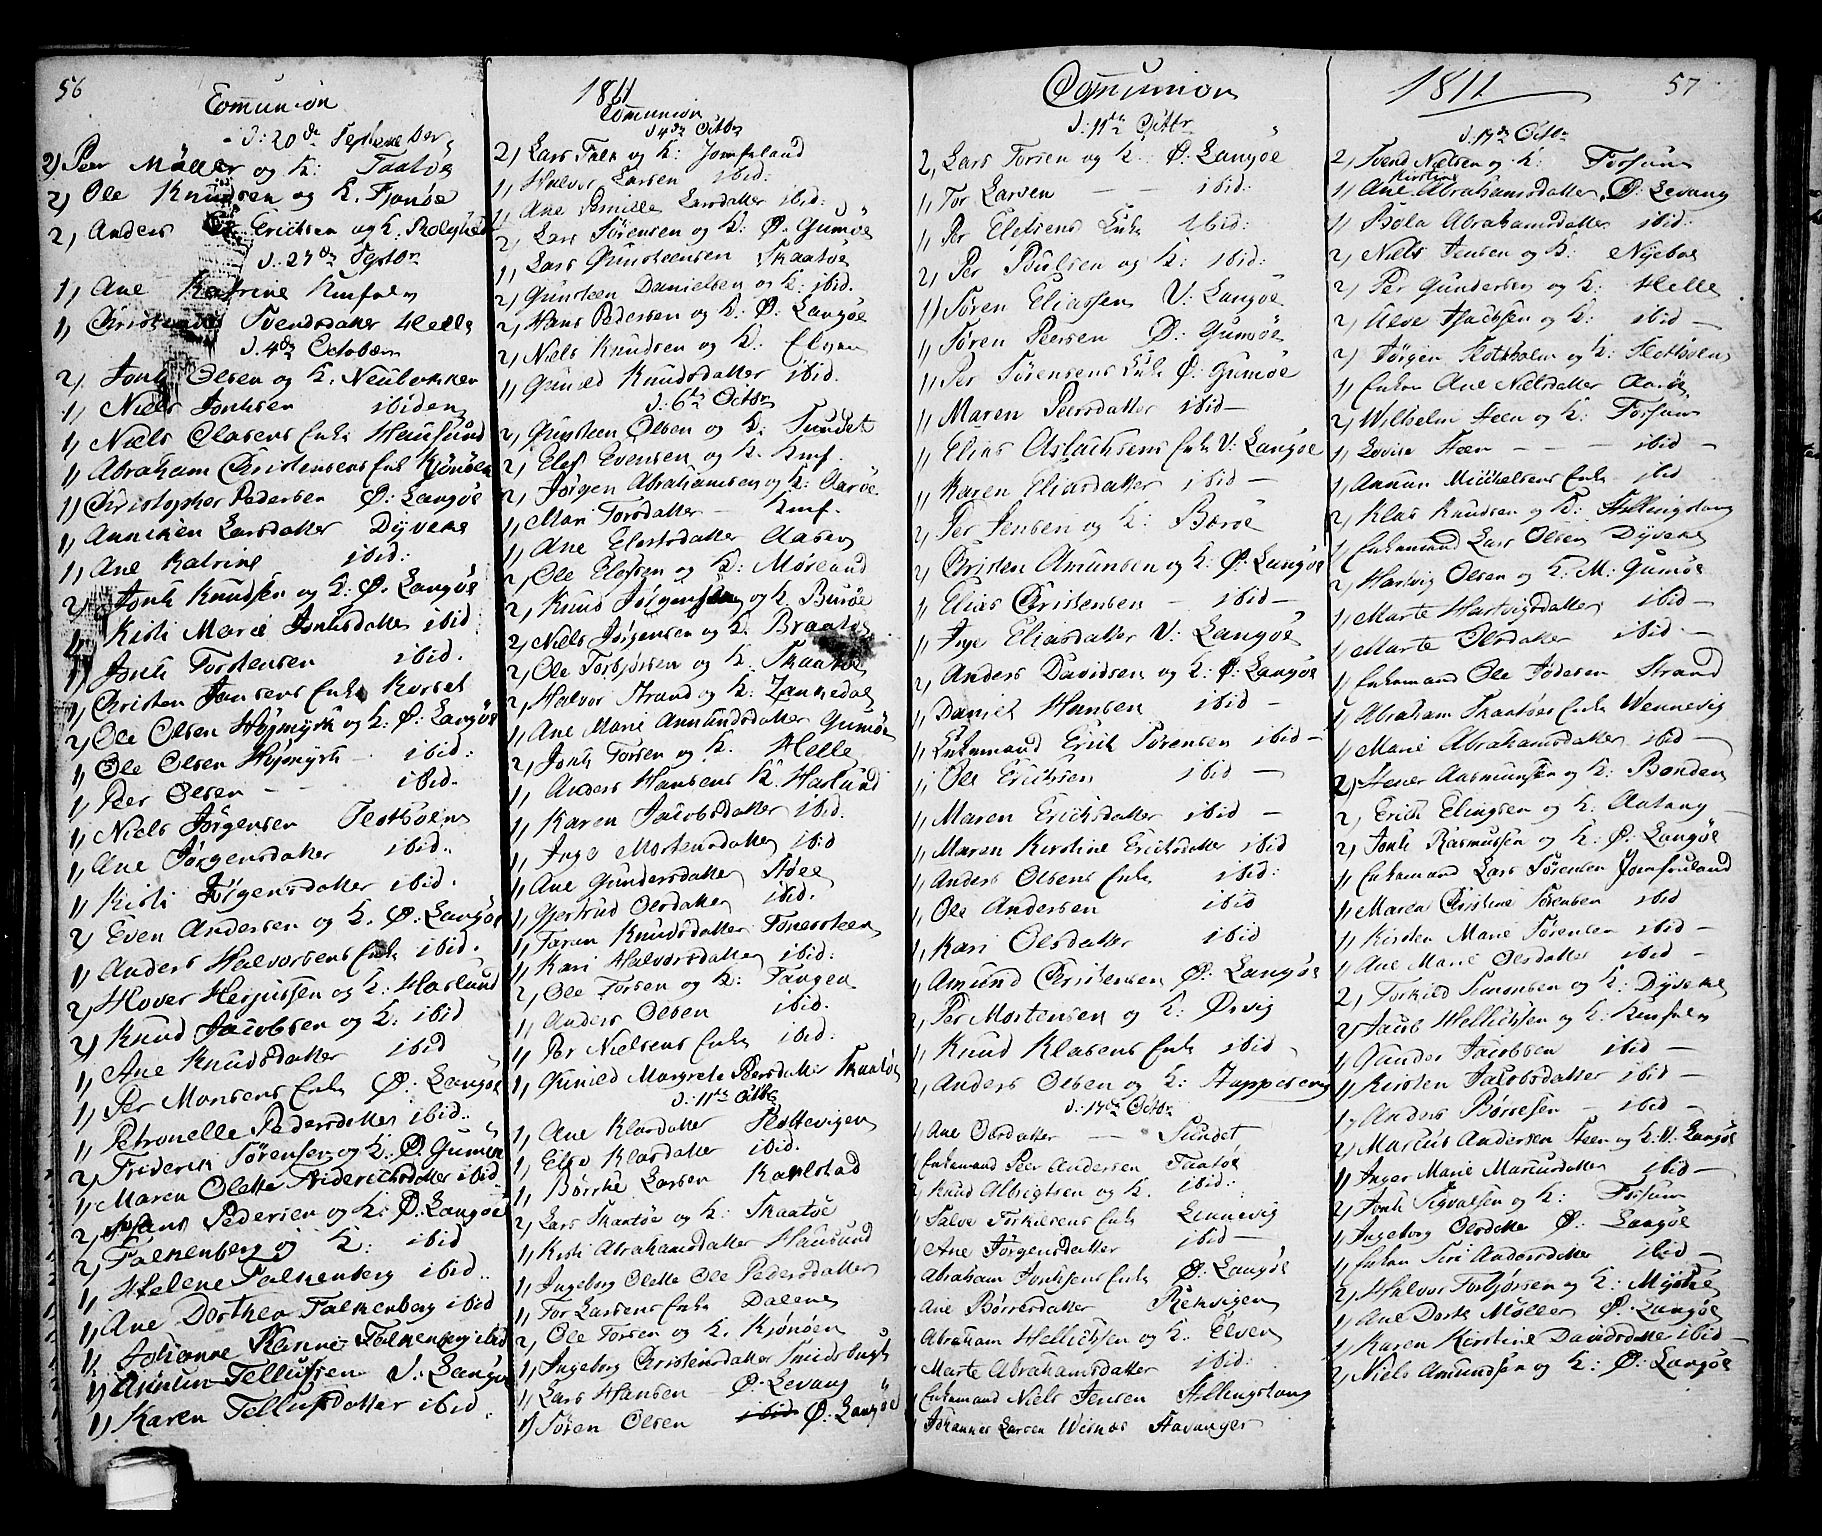 56
Communion
d: 20de September
2, Peer Möller og K: Taatøe
2, Ole Knudsen og K. Fjonøe
2, Anders Erichsen og K.
d. 27de Septbr
1, Ane Katrine
1, Svendsdatter Helle
d. 4de Octobem
2, Jonk Olsen og K.
1, Niels Jonksen ibidem
1, Niels Clasens Enke Hausund
1, Abraham Christensens Enk Kjønøen
1, Christopher Pedersen Ø: Langøe
1, Anniken Larsdatter Dyveke
1, Ane Katrine ibid:
2, Jonk Knudsen og K: Ø. Langøe
1, Kisti Marie Jonksdatter ibid.
1, Jonk Torstensen ibid.
1, Christen Jansens Enke Korset
2, Ole Olsen Højmyrk og K: Ø: Langøe
1, Ole Olsen Højmyrk ibid:
1, Peer Olsen - - ibid.
1, Niels Jørgensen Slotholm
1, Ane Jørgensdatter ibid.
1, Kisti Jørgensdatter ibid.
2, Even Andersen og K. Ø: Langøe
1, Anders Halvorsens Enke ibid.
2, Hover Herjussen og K: Haslund
2, Knud Jacobsen og K: ibid
1, Ane Knudsdatter ibid
1, Per Monsens Enke Ø: Langøe
1, Petronelle Pedersdatter ibid.
2, Friderik Sørensen og K: Ø: Gumøe
1, Maren Olette Friderichsdatter ibid.
2, Hans Pedersen og K: Ø: Langøe
2, Falkenberg og K: ibid
1, Helene Falkenberg ibid.
1, Ane Dorthea Falkenberg ibid
1, Johanne Falkenberg ibid
1, Tellufsen V: Langøe
1, Karen Tellufsdatter ibid.
1811
Communion
d 4de Octbr
2, Lars Falk og K: Jomfruland
1, Halvor Larsen ibid:
1, Ane Pernille Larsdatter ibid:
2, Lars Sørensen og K: Ø. Gumøe
1, Lars Gunsteensen Skaatøe
2, Gunsteen Danielsen og K: ibid.
2, Hans Pedersen og K: Ø: Langøe
2, Niels Knudsen og K:
1, Gunild Knudsdatter ibid.
d: 6te Octbr
2, Gunsteen Olsen og K: Sundet
2, Elef Evensen og K. Kmf.
2, Jørgen Abrahamsen og K: Aarøe
1, Mari Torsdatter - Kmf.
1, Ane Elefsdatter Aasen
2, Ole Elefsen og K: Møreland
2, Knud Jørgensen og K. Burøe
2, Niels Jørgensen og K. Braatøe
2, Ole Torbjørsen og K. Skaatøe
2, Halvor Strand og K: Zankedal
1, Ane Marie Amundsdatter Gumøe
2, Jonk Torsen og K. Helle
1, Anders Hansens K. Haslund
1, Karen Jacobsdatter ibid.
1, Inge Mortensdatter ibid
1, Ane Gundersdatter Stoe
1, Gjertrud Olsdatter ibid.
1, Taran Knudsdatter Fonersteen
1, Kari Halvorsdatter ibid.
2, Ole Torsen og K: Tangen
1, Anders Olsen ibid.
1, Per Nielsens Enke ibid:
1, Gunild Margrete Peersdatter Skaatøe
d: 11te Octbr
1, Ane Klasdatter Slottevigen
1, Else Klasdatter ibid.
1, Børrhe Larsen Karlstad
2, Lars Skaatøe og K: Skaatøe
1, Kisti Abrahamsdatter Hausund
1, Ingeborg Olette Ole Pedersdatter
1, Tor Larsens Enke Dalene
2, Ole Torsen og K. Kjønøen
1, Ingeborg Christensdatter Smidsbugt
1, Lars Hansen Ø: Levang
1, Søren Olsen ibid Ø: Langøe
Communion
d: 11te Octbr
2, Lars Torsen og K: Ø: Langøe
1, Tor Larsen - - ibid:
1, Per Elefsens Enke ibid:
2, Per Poulsen og K: ibid:
1, Søren Eliassen V: Langøe
1, Søren Peersen Ø: Gumøe
1, Per Sørensens Enke Ø: Gumøe
1, Maren Peersdatter ibid -
1, Elias Aslachsens Enke V: Langøe
1, Karen Eliasdatter ibid -
2, Per Jensen og K: Bærøe
2, Christen Amunsen og K: Ø: Langøe
1, Elias Christensen - ibid -
1, Inge Eliasdatter V: Langøe
2, Anders Davidsen og K: Ø: Langøe
1, Daniel Hansen ibid -
1, Enkemand Erik Sørensen ibid -
1, Ole Erichsen ibid -
1, Maren Ericksdatter ibid -
1, Maren Kirstine Ericksdatter ibid
1, Anders Olsens Enke ibid:
1, Ole Andersen ibid
1, Kari Olsdatter ibid
1, Amund Christensen Ø: Langøe
2, Per Mortensen og K: Ørvig
1, Knud Klasens Enke ibid -
2, Anders Olsen og K: Stoppeseng
d: 17de Octbr
1, Ane Olsdatter - Sundet
1, Enkemand Peer Andersen Taatøe
2, Knud Albrigtsen og K. ibid:
1, Salve Torkilsens Enke Linnevig
1, Ane Jørgensdatter ibid -
Abraham Jonksens Enke Ø: Langøe
Ane Børresdatter Rekvigen
Abraham Hellichsen og K. Elven
Marte Abrahamsdatter ibid:
Enkemand Niels Jensen Stillingstang
Johannes Larsen Wisnæs Stavanger
1811
57
d: 17de Octbr
2, Svend Nielsen og K: Forsum
Kirstine
1, Ane Abrahamsdatter Ø: Levang
1, Bola Abrahamsdatter ibid:
2, Niels Jensen og K: Nyeboe
2, Per Gundersen og K: Helle
2, Ulve Isachsen og K: ibid -
2, Jørgen Slotholm og K: Slotholm
1, Enken Ane Nielsdatter Aarøe
2, Wilhelm Steen og K: Forsum
1, Lovise Steen - - ibid -
1, Annun Michelsens Enke ibid
2, Klas Knudsen og K: Stillingstang
1, Enkemand Lars Olsen Dyveke
2, Hartvig Olsen og K: M: Gumøe
1, Marte Hartvigsdatter ibid -
1, Marte Olsdatter ibid -
1, Enkemand Ole Jodesen Strand
1, Abraham Skaatøes Enke Wennevig
1, Marie Abrahamsdatter ibid -
2, Stener Aasmunsen og K: Bonden
2, Erich Elingsen og K: Aatang -
2, Jonk Rasmussen og K: Ø: Langøe
1, Enkemand Lars Sørensen Jomfruland
1, Maren Christine Sørensen ibid
1, Kirsten Marie Sørensen ibid -
1, Ane Marie Olsdatter ibid -
2, Torkild Simonsen og K: Dyveke
2, Jacob Hellichsen og K: Kmfulm
1, Gunder Jacobsen ibid -
1, Kirsten Jacobsdatter ibid -
1, Anders Børresen - ibid -
2, Marcus Andersen Steen og K: V: Langøe
1, Inger Marie Marcusdatter ibid -
2, Jonk Sigvalsen og K: Forsum
1, Ingeborg Olsdatter Ø: Langøe
1, Enken Siri Andersdatter ibid -
2, Halvor Torbjørsen og K: Myhre
1, Ane Dorte Møller Ø: Langøe
1, Karen Kirstine Davidsdatter ibid -
2, Niels Amundsen og K: Ø: Langøe